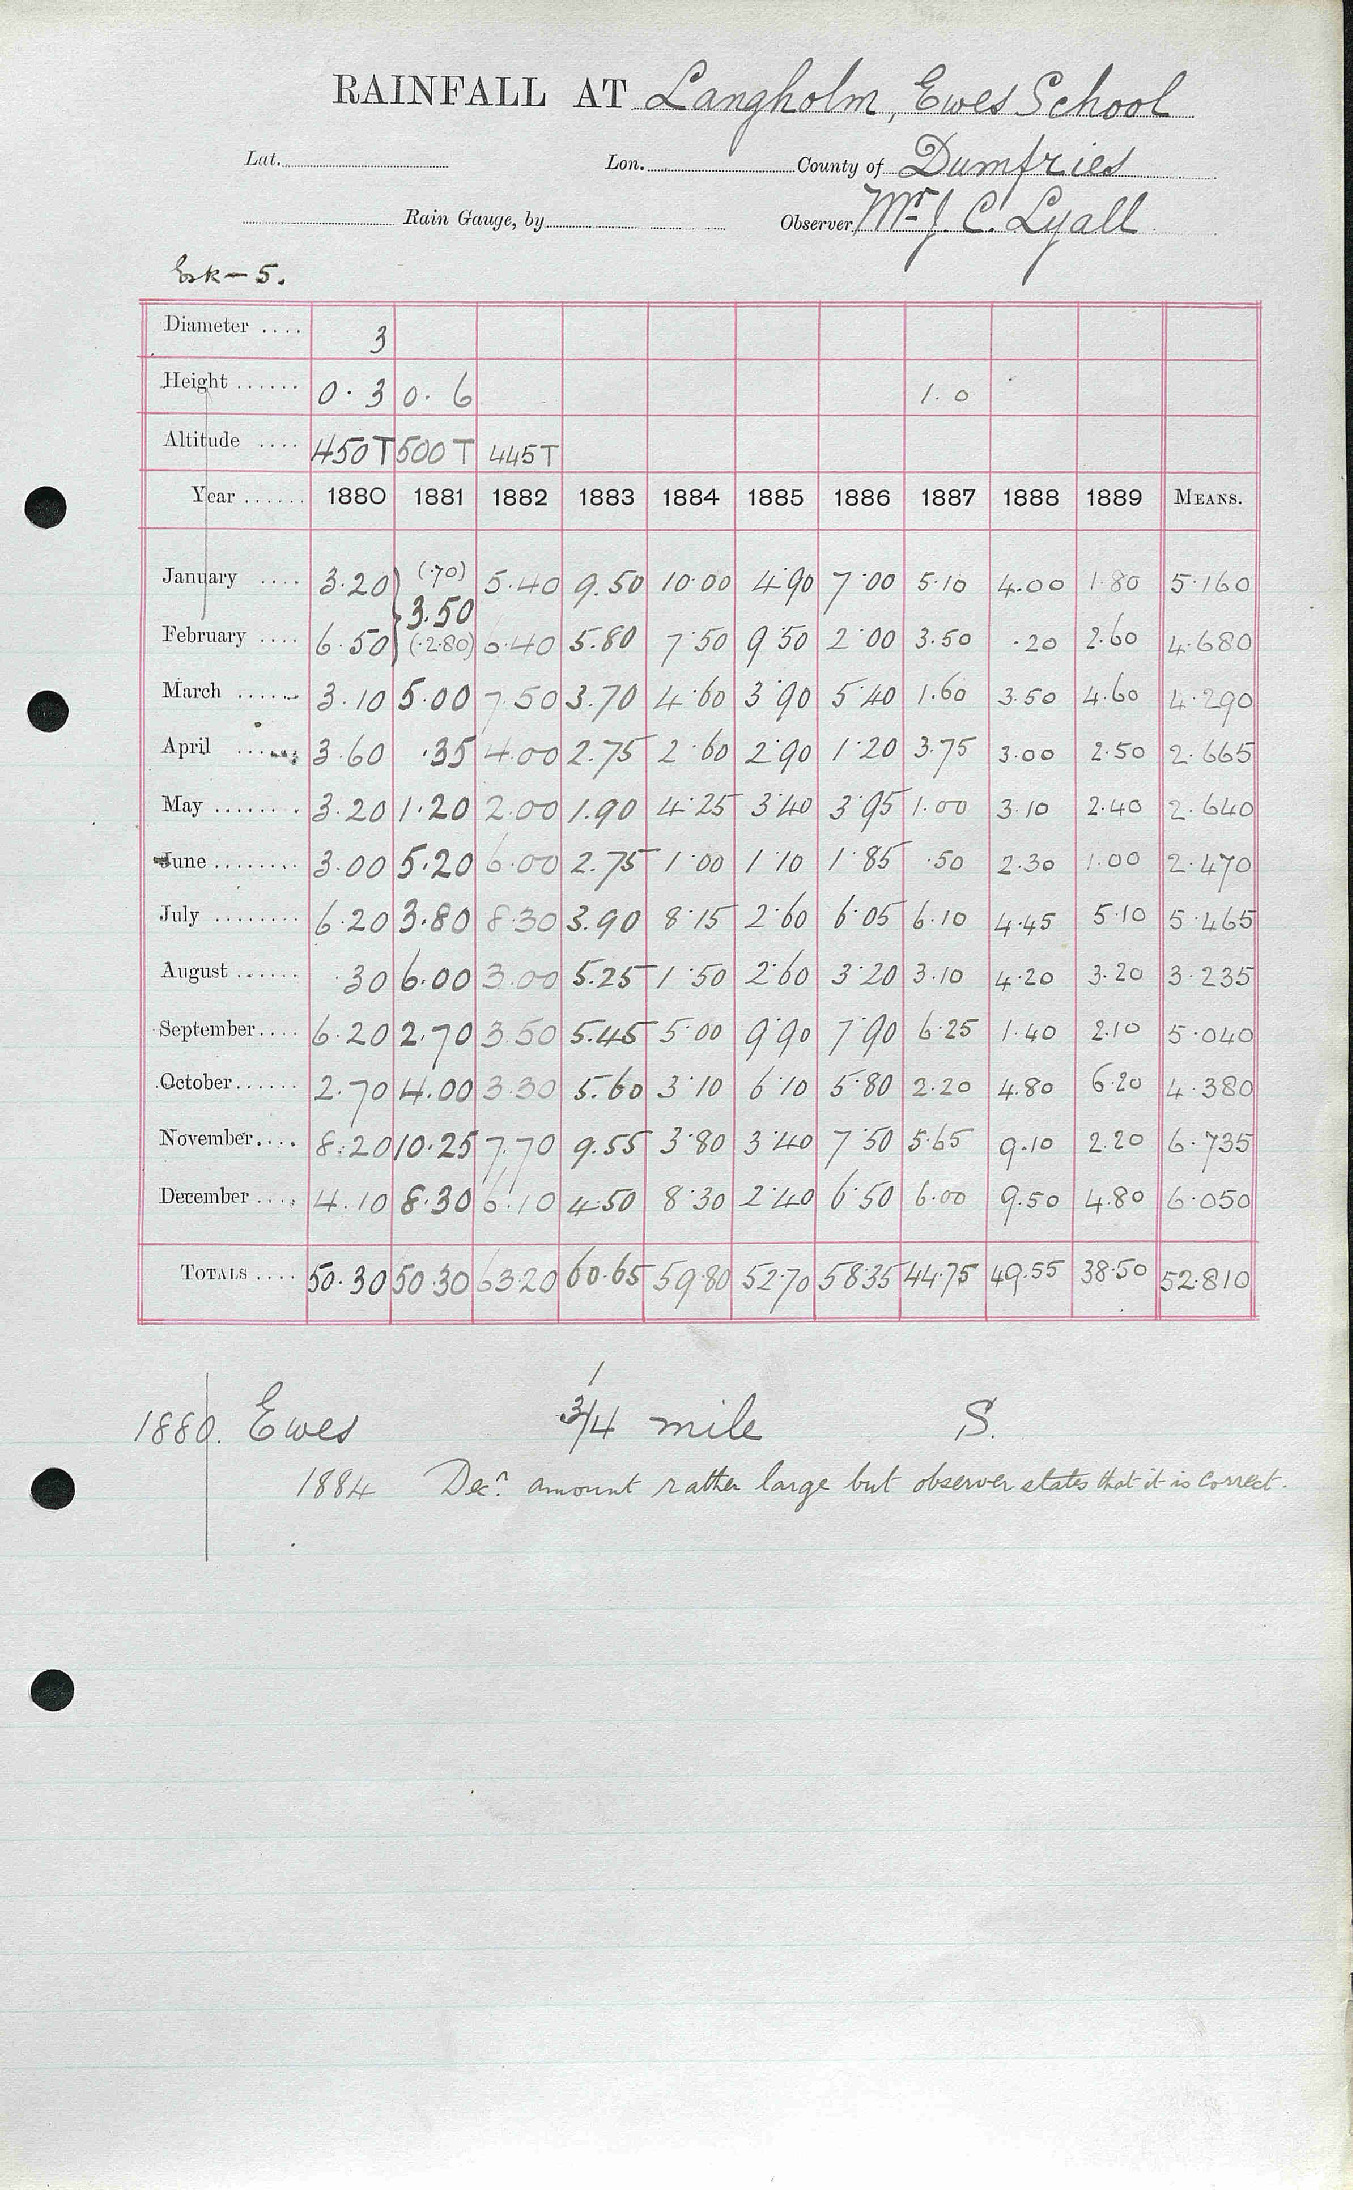 RAINFALL AT Langholm, Ewes School
Lat. Lon. County of Dumfries
Rain Gauge, by Observer, Mr J. C. Lyall
Esk - 5.
Diameter .... 3
Height ...... 0.3 0.6 1.0
Altitude .... 450T 500T 445T
Year ...... 1880 1881 1882 1883 1884 1885 1886 1887 1888 1889 MEANS.
January .... 3.20 (.70) 5.40 9.50 10.00 4.90 7.00 5.10 4.00 1.80 5.160
3.50
February .... 6.50 (.2.80) 6.40 5.80 7.50 9.50 2.00 3.50 .20 2.60 4.680
March ...... 3.10 5.00 7.50 3.70 4.60 3.90 5.40 1.60 3.50 4.60 4.290
April ...... 3.60 .35 4.00 2.75 2.60 2.90 1.20 3.75 3.00 2.50 2.665
May ........ 3.20 1.20 2.00 1.90 4.25 3.40 3.95 1.00 3.10 2.40 2.640
June ........ 3.00 5.20 6.00 2.75 1.00 1.10 1.85 .50 2.30 1.00 2.470
July ........ 6.20 3.80 8.30 3.90 8.15 2.60 6.05 6.10 4.45 5.10 5.465
August ...... .30 6.00 3.00 5.25 1.50 2.60 3.20 3.10 4.20 3.20 3.235
September.... 6.20 2.70 3.50 5.45 5.00 9.90 7.90 6.25 1.40 2.10 5.040
October...... 2.70 4.00 3.30 5.60 3.10 6.10 5.80 2.20 4.80 6.20 4.380
November.... 8.20 10.25 7.70 9.55 3.80 3.40 7.50 5.65 9.10 2.20 6.735
December .... 4.10 8.30 6.10 4.50 8.30 2.40 6.50 6.00 9.50 4.80 6.050
TOTALS .... 50.30 50.30 63.20 60.65 59.80 52.70 58.35 44.75 49.55 38.50 52.810
1880. Ewes 3/4 mile S.
1884 Decr. amount rather large but observer states that it is correct.